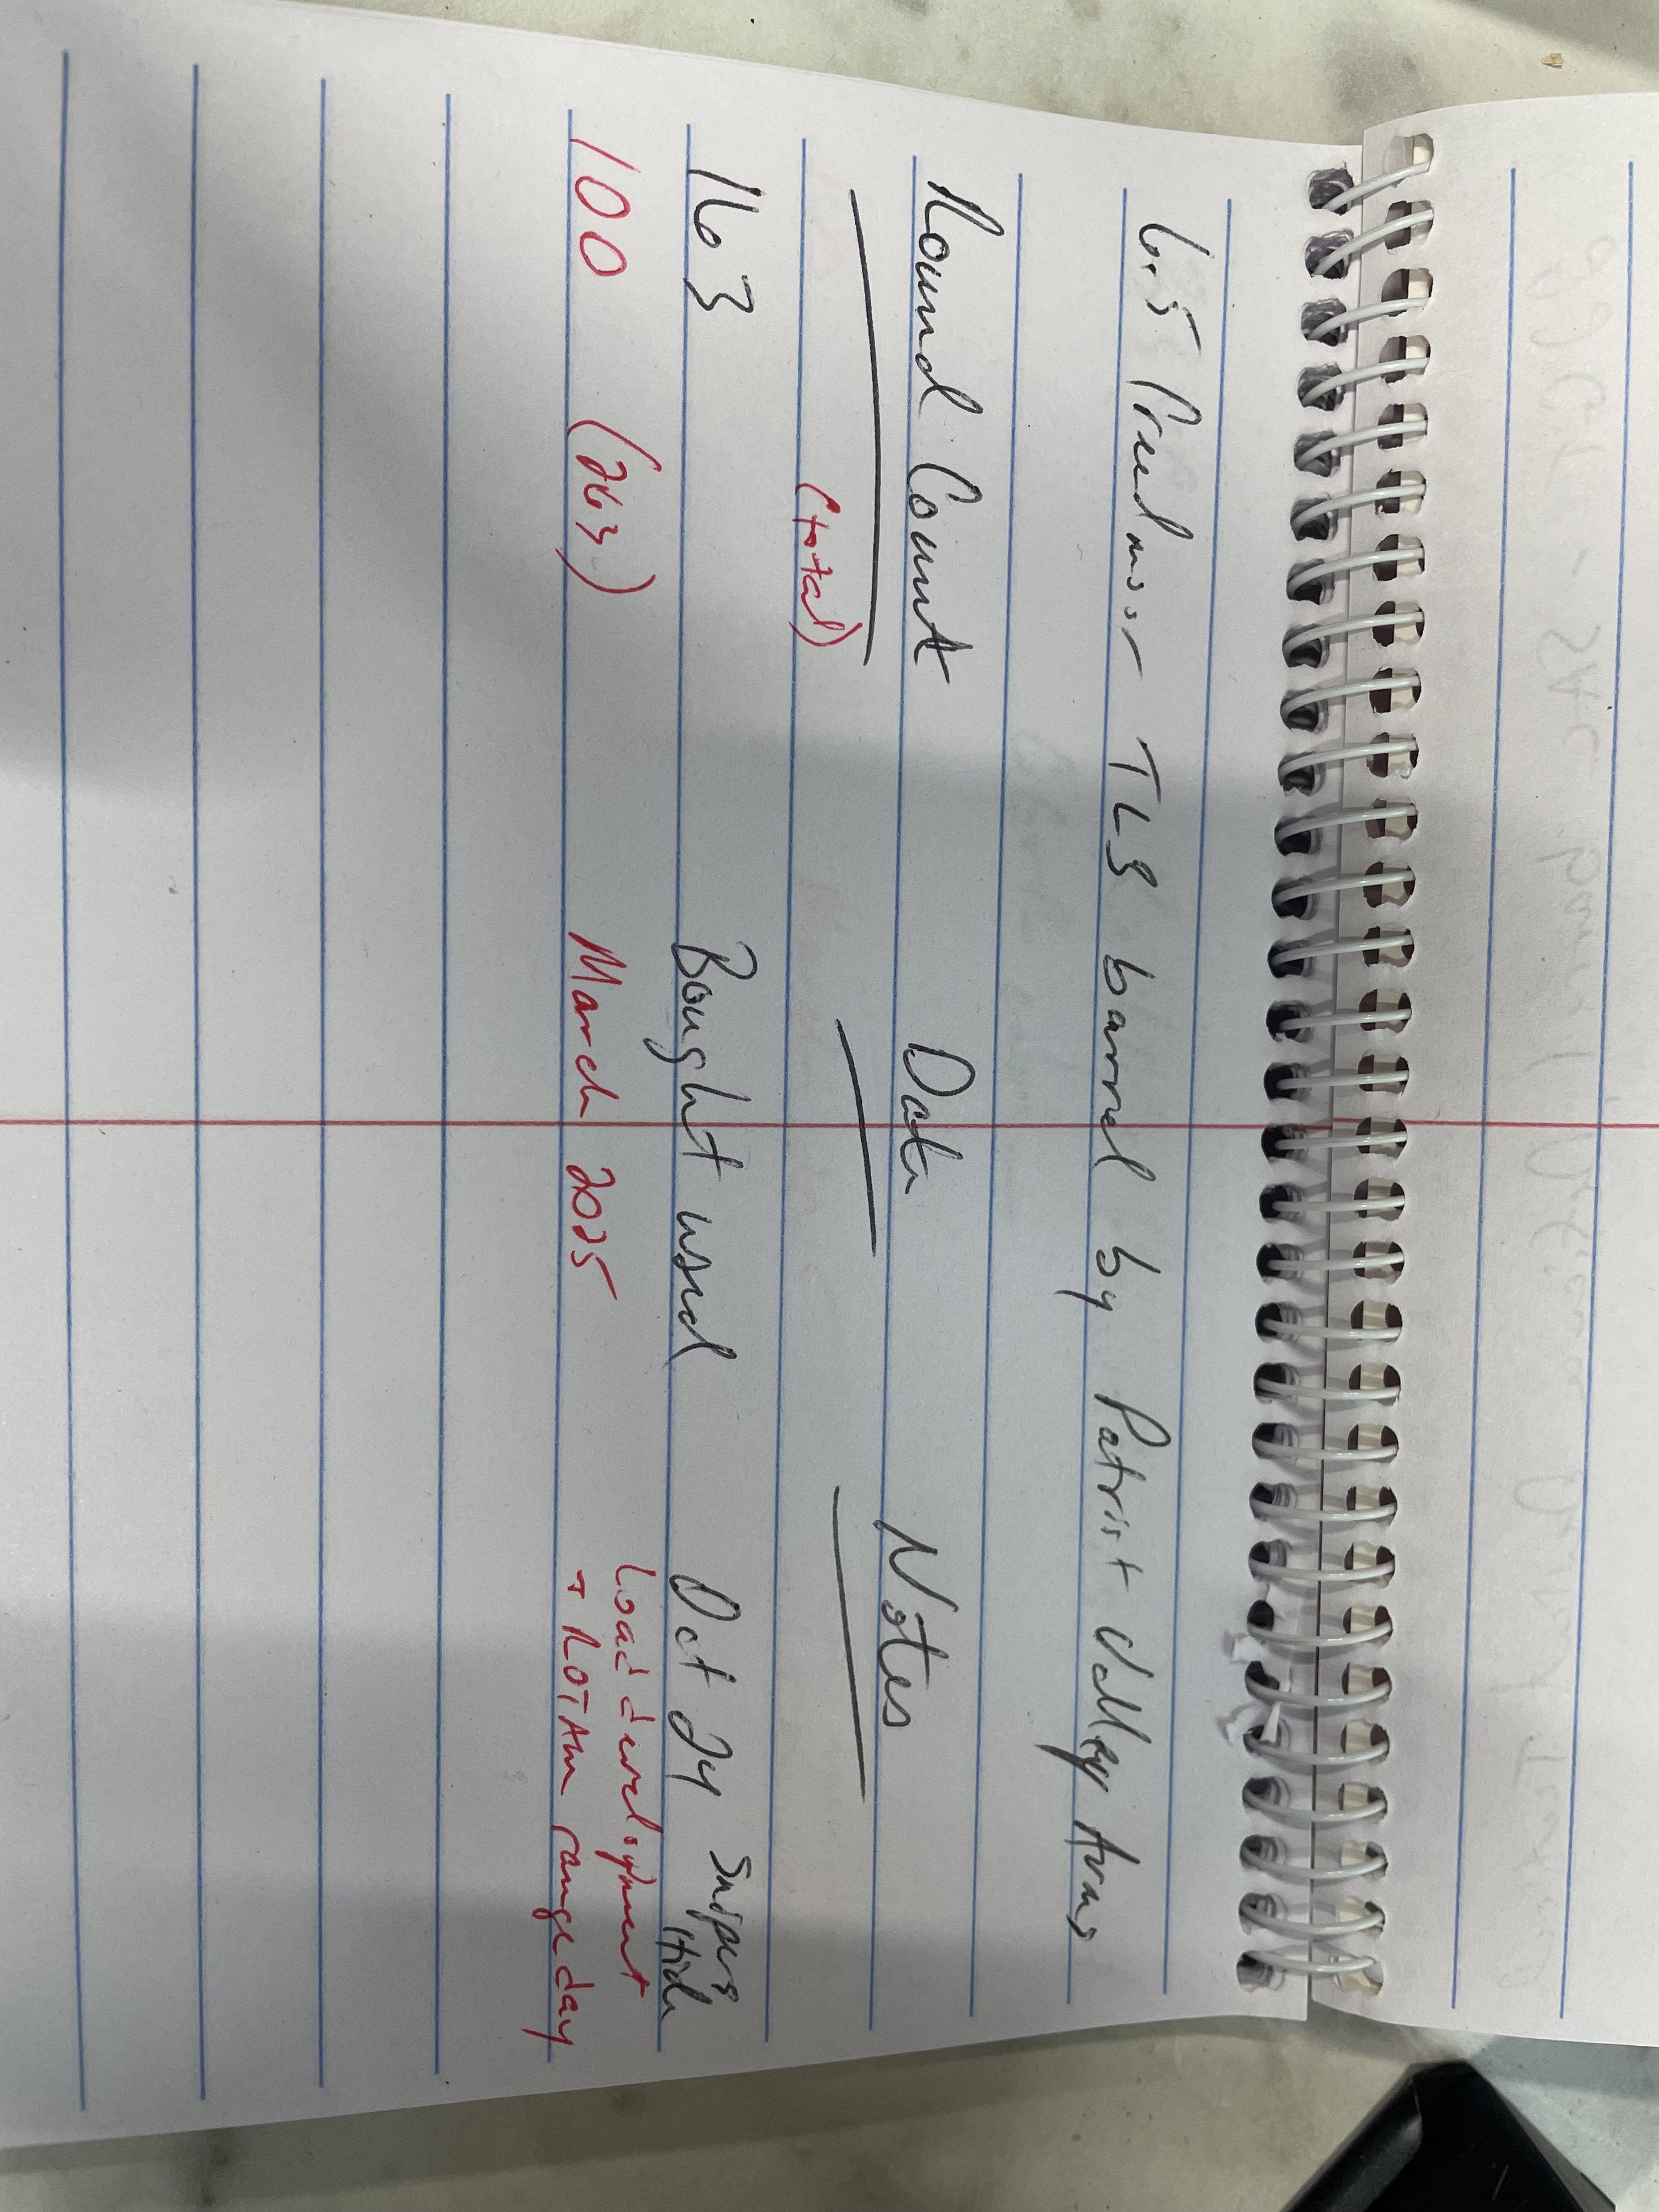 6.5 Creedmoor TL3 barrel by Patriot Valley Arms
Round Count Date Notes
(total)
163 Bought used Oct 24 Snipers Hide
100 (263) March 2025 Load development
+ ROTAM range day